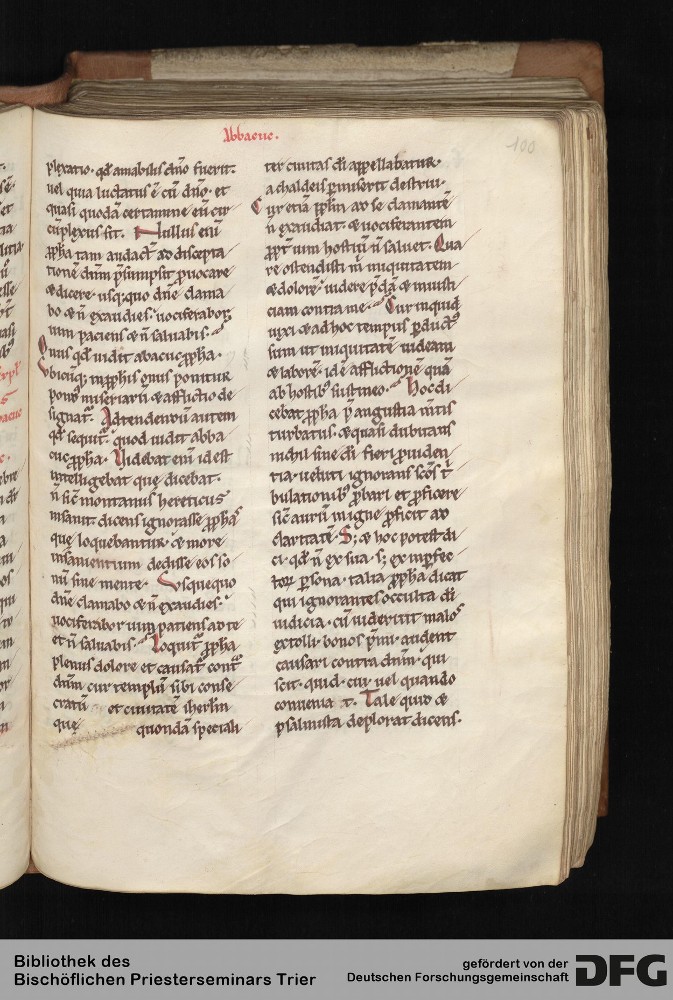 Abbacuc.
100
plexatio. qd̄ amabilis dn̄o fuerit.
uel quia luctatus ē cū dn̄o. et
quasi quodā certamine eū cir
cūplexus sit. Nullus enī
ꝓph̄a tam audaci ad discepta
tionē dn̄m p̄sumpsit ꝓuocare
& dicere. usq;quo dn̄e clama
bo & n̄ exaudies. uociferabor
uim paciens & n̄ saluabis.
Onus qd̄ uidit abacuc ꝓph̄a.
Vbicūq; in ꝓphis onus ponitur
pond miseriarū & afflictio de
signat̄. Adtendendū autem
qd̄ sequit̄. quod uidit abba
cuc ꝓph̄a. Videbat enī id est
intelligebat que dicebat.
n̄ sic̄ montanus hereticus
insanit dicens ignorasse ꝓph̄as
que loquebantur. & more
insanientium dedisse eos so
nū sine mente. Vsquequo
dn̄e clamabo & n̄ exaudies.
uociferabor uim patiens ad te
et n̄ saluabis. Loquit̄ ꝓph̄a
plenus dolore et causat̄ cont̄
dn̄m cur templū sibi conse
cratū et ciuitatē ih̄erlm̄
que quondā speciali
ter ciuitas dī appellabatur.
a chaldeis ꝑmiserit destrui.
Cur etiā ppl̄m ad se clamantē
n̄ exaudiat. & uociferantem
ꝓpt̄ uim hostiū n̄ saluet. Qua
re ostendisti m̄ iniquitatem
& dolorē. uidere p̄dā & iniusti
ciam contra me. Cur inquid
uixi & ad hoc tempus ꝑduct᷒
sum ut iniquitatē uideam
& laborē. id ē afflictionē quā
ab hostib᷒ sustineo. Hoc di
cebat ꝓph̄a p̄ angustia m̄tis
turbatus. & quasi dubitans
nichil sine dī fieri ꝓuiden
tia. ueluti ignorans sc̄os t̄
bulationib᷒ ꝓbari et ꝓficere
sic̄ aurū in igne ꝓficit ad
claritatē. S; & hoc potest di
ci. qd̄ n̄ ex sua. s; ex inꝑfec
torꝝ ꝑsona. talia ꝓph̄a dicat
qui ignorantes occulta dī
iudicia. cū uiderint malos
extolli. bonos p̄mi. audent
causari contra dn̄m. qui
scit. quid. cui uel quando
conuenia t. Tale quid &
psalmista deplorat dicens.
Bibliothek des
Bischöflichen Priesterseminars Trier
gefördert von der
Deutschen Forschungsgemeinschaft
DFG